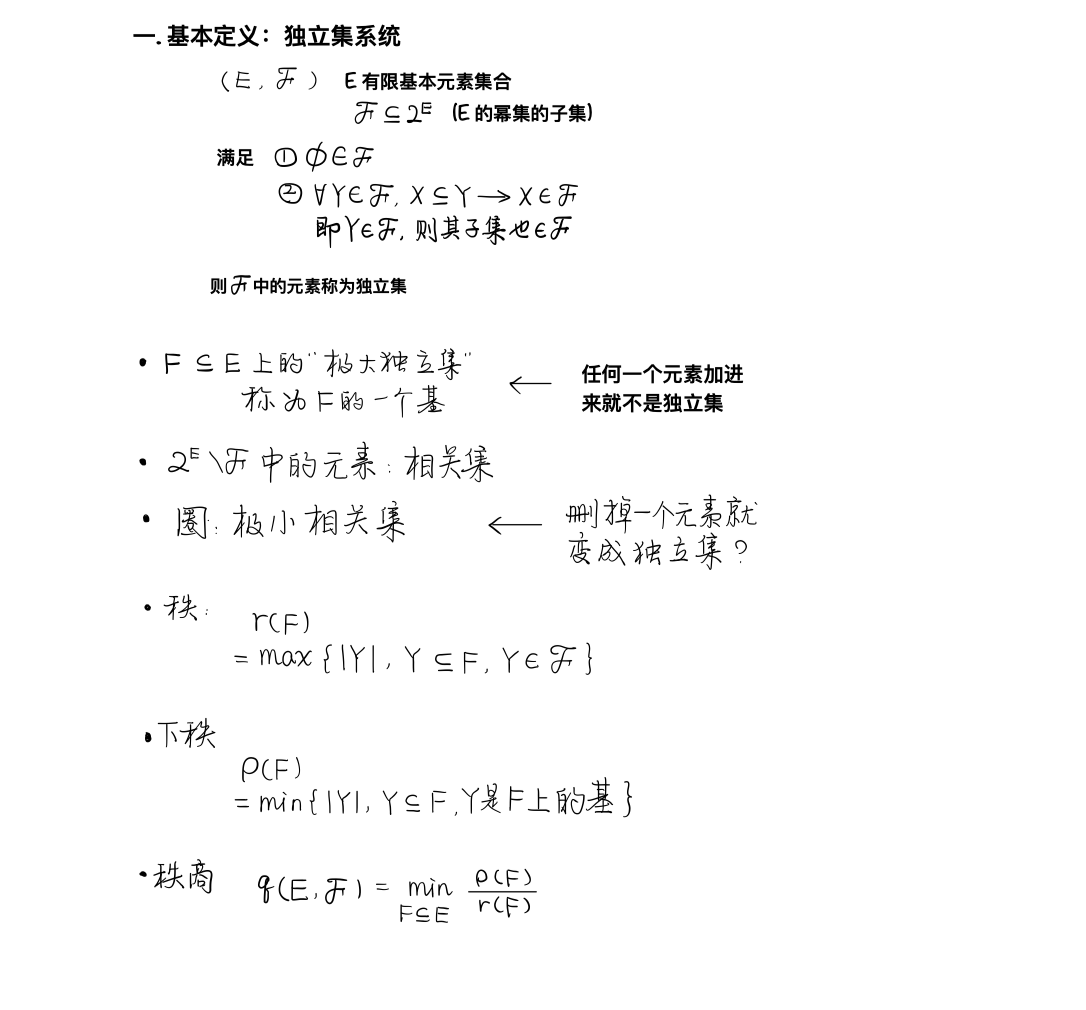 一. 基本定义：独立集系统
(E, ℱ) E 有限基本元素集合
ℱ ⊆ 2^E (E 的幂集的子集)
满足 ① ∅∈ℱ
② ∀Y∈ℱ, X ⊆ Y → X∈ℱ
即Y∈ℱ, 则其子集也∈ℱ
则 ℱ 中的元素称为独立集
• F ⊆ E 上的“极大独立集”
称为F的一个基
← 任何一个元素加进
来就不是独立集
• 2^E \ ℱ 中的元素: 相关集
• 圈: 极小相关集
← 删掉一个元素就
变成独立集?
• 秩:
r(F)
= max {|Y|, Y ⊆ F, Y∈ℱ}
• 下秩
ρ(F)
= min{|Y|, Y⊆F, Y是F上的基}
• 秩商 q(E, ℱ) = min_{F⊆E} ρ(F)/r(F)